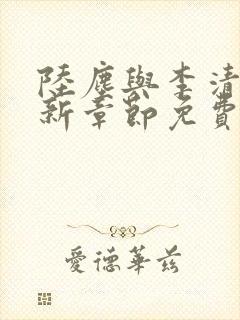 陸塵與李清
新章節免費
愛德華茲